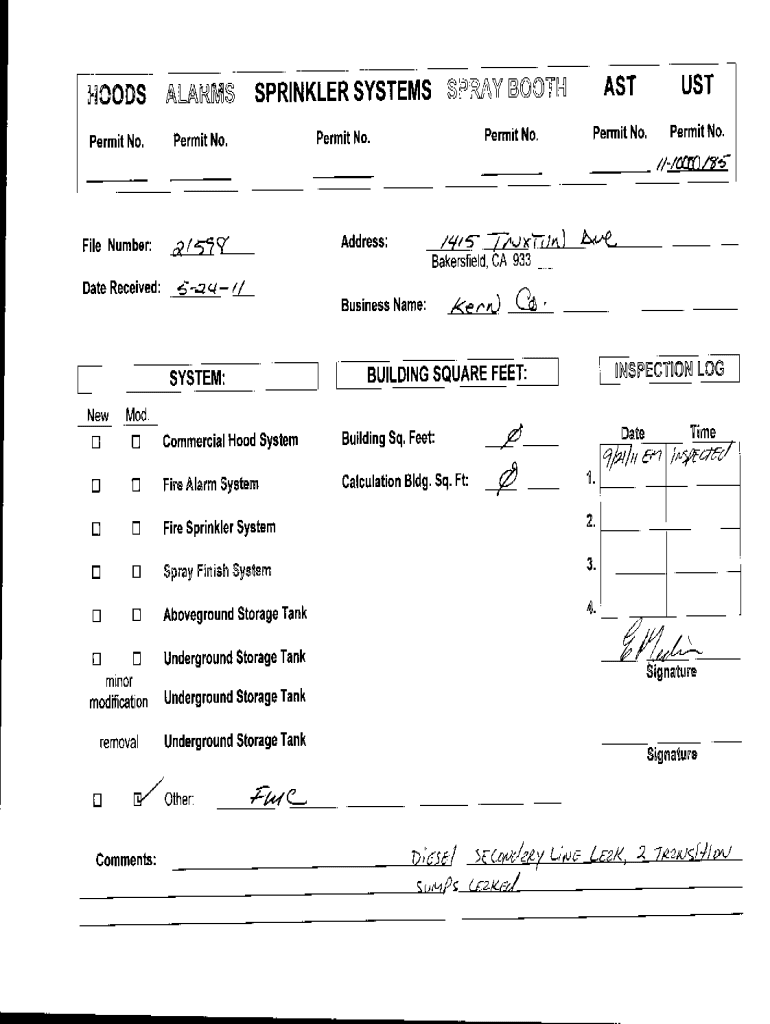 HOODS ALARMS SPRINKLER SYSTEMS SPRAY BOOTH AST UST
Permit No. Permit No. Permit No. Permit No. Permit No. Permit No.
11-10000185
File Number: 21599 Address: 1415 Truxtun Ave
Bakersfield, CA 933
Date Received: 5-24-11
Business Name: Kern Co.
SYSTEM: BUILDING SQUARE FEET: INSPECTION LOG
New Mod.
Commercial Hood System Building Sq. Feet: Ø Date Time
9/21/11 EM INSPECTED
Fire Alarm System Calculation Bldg. Sq. Ft: Ø 1.
Fire Sprinkler System 2.
Spray Finish System 3.
Aboveground Storage Tank 4.
Underground Storage Tank
Signature
minor
modification Underground Storage Tank
removal Underground Storage Tank
Signature
Other: FMC
Comments: DiESEl SECONdERY LiNE LEAK, 2 TRANSITION
SUMPS LEAKEd